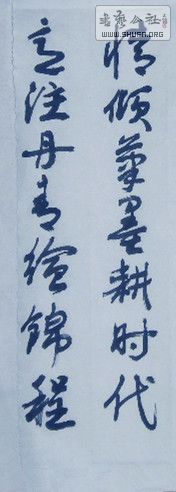 情倾笔墨耕时代
意注丹青绘锦程
书艺公社
WWW.SHUFA.ORG